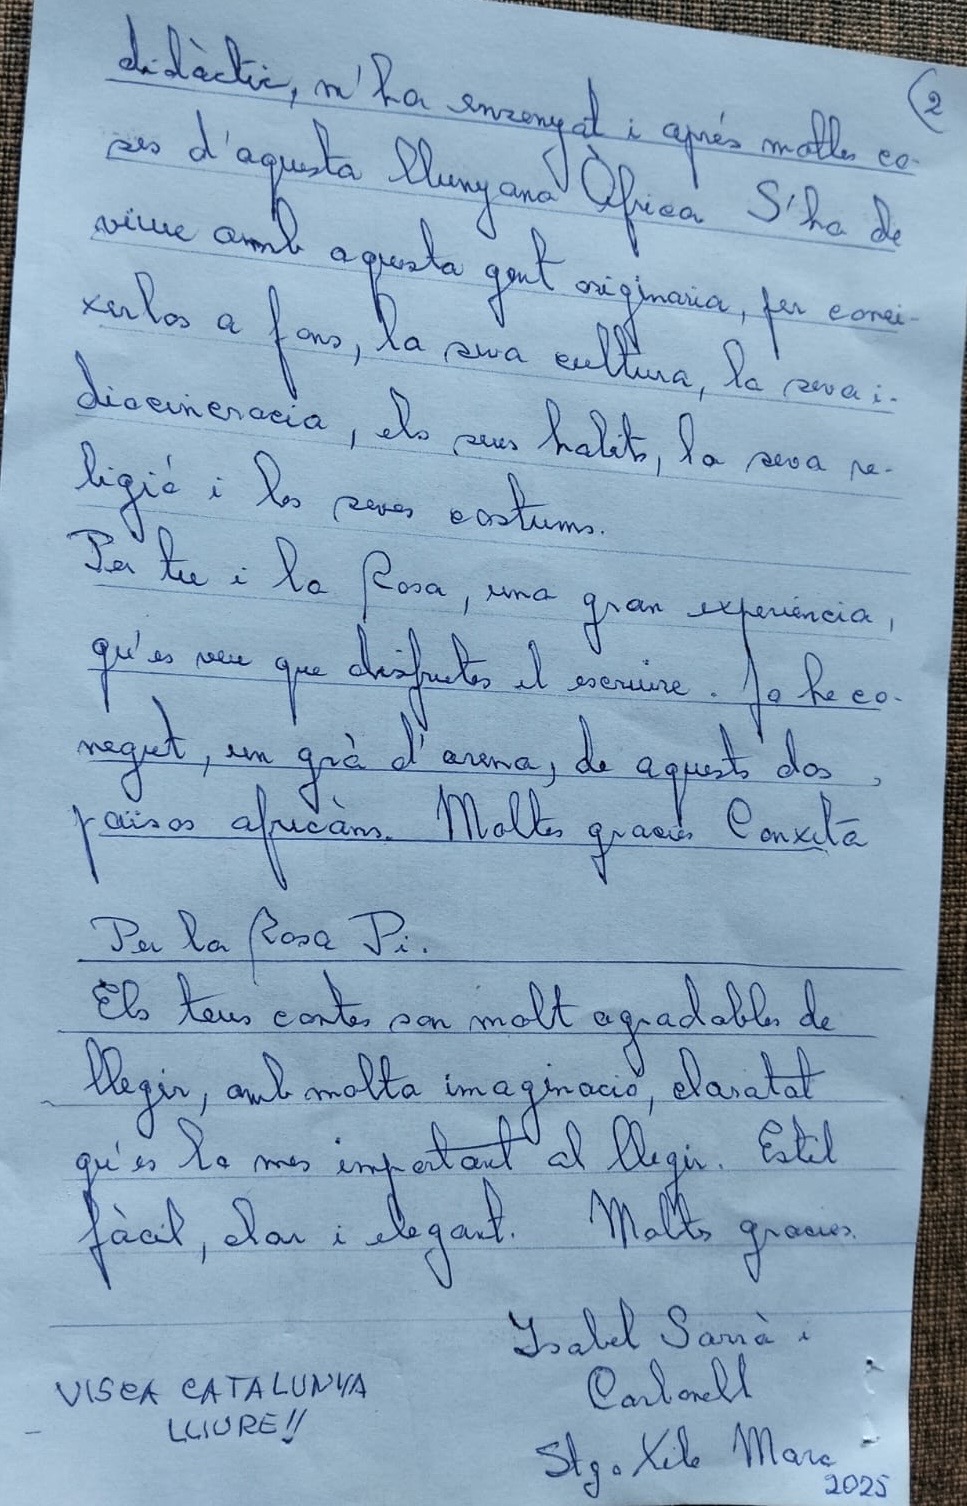 (2
didàctic, m'ha ensenyat i aprés moltes co-
ses d'aquesta llunyana Àfrica S'ha de
viure amb aquesta gent originaria, per conei-
xerlos a fons, la seva cultura, la seva i-
diocincracia, els seus habits, la seva re-
ligió i les seves costums.
Per tu i la Rosa, una gran experiència,
qu'es veu que disfrutes el escriure. Jo he co-
negut, un grà d'arena, de aquests dos,
països africàns. Moltes gracies Conxita
Per la Rosa Pi.
Els teus contes son molt agradables de
llegir, amb molta imaginació, claratat
qu'es la mes important al llegir. Estil
fàcil, clar i elegant. Moltes gracies.
Isabel Sarrà i
Carbonell
VISCA CATALUNYA
LLIURE!!
Stgo. Xile Març
2025